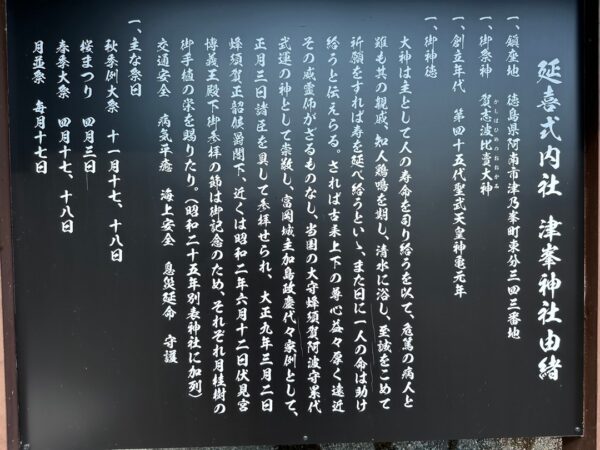 延喜式内社 津峯神社由緒
一、鎮座地 徳島県阿南市津乃峯町東分三四三番地
一、御祭神 賀志波比売大神
かしはひめのおおかみ
一、創立年代 第四十五代聖武天皇神亀元年
一、御神徳
大神は主として人の寿命を司り給うを以て、危篤の病人と
雖も其の親戚、知人鶏鳴を期し、清水に浴し、至誠をこめて
祈願をすれば寿を延べ給うといゝ、また日に一人の命は助け
給うと伝えらる。されば古来上下の尊心益々厚く遠近
その威霊仰がざるものなし、当国の大守蜂須賀阿波守累代
武運の神として崇敬し、富岡城主加島政慶代々案例として、
正月三日諸臣を具して参拝せられ、大正九年三月二日
蜂須賀正韶候爵閣下、近くは昭和二年六月十二日伏見宮
博義王殿下御参拝の節は御記念のため、それぞれ月桂樹の
御手植の栄を賜りたり。(昭和二十五年別表神社に加列)
交通安全 病気平癒 海上安全 息災延命 守護
一、主な祭日
秋季例大祭 十一月十七、十八日
桜まつり 四月三日
春季大祭 四月十七、十八日
月並祭 毎月十七日